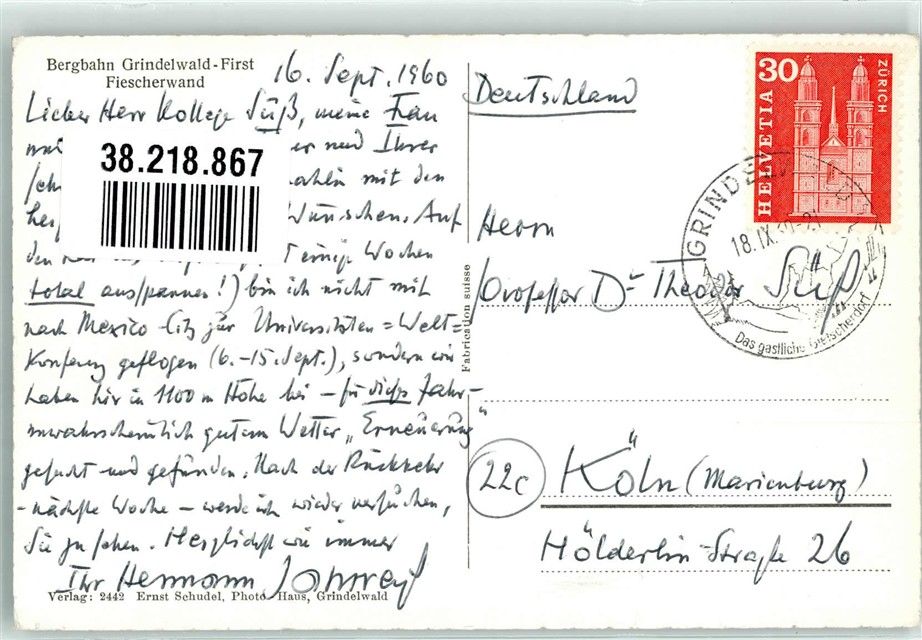 Bergbahn Grindelwald-First
Fiescherwand
16. Sept. 1960
Lieber Herr Kollege Süß, meine Frau
und Ihrer
mit den
Wünschen. Auf
den einige Wochen
total ausspannen!) bin ich nicht mit
nach Mexico-City zur Universitäten=Welt=
Konferenz geflogen (6.-15. Sept.), sondern wir
haben hier in 1100 m Höhe bei - für dieses Jahr -
unwahrscheinlich gutem Wetter „Erneuerung“
gesucht und gefunden. Nach der Rückkehr
- nächste Woche - werde ich wieder versuchen,
Sie zu sehen. Herzlichst wie immer
Ihr Hermann
Verlag: 2442 Ernst Schudel, Photo Haus, Grindelwald
38.218.867
Fabrication suisse
Deutschland
Herrn
Professor Dr Theodor Süß
22c
Köln (Marienburg)
Hölderlin-Straße 26
30
HELVETIA
ZÜRICH
GRINDELWALD
18.IX.
Das gastliche Gletscherdorf